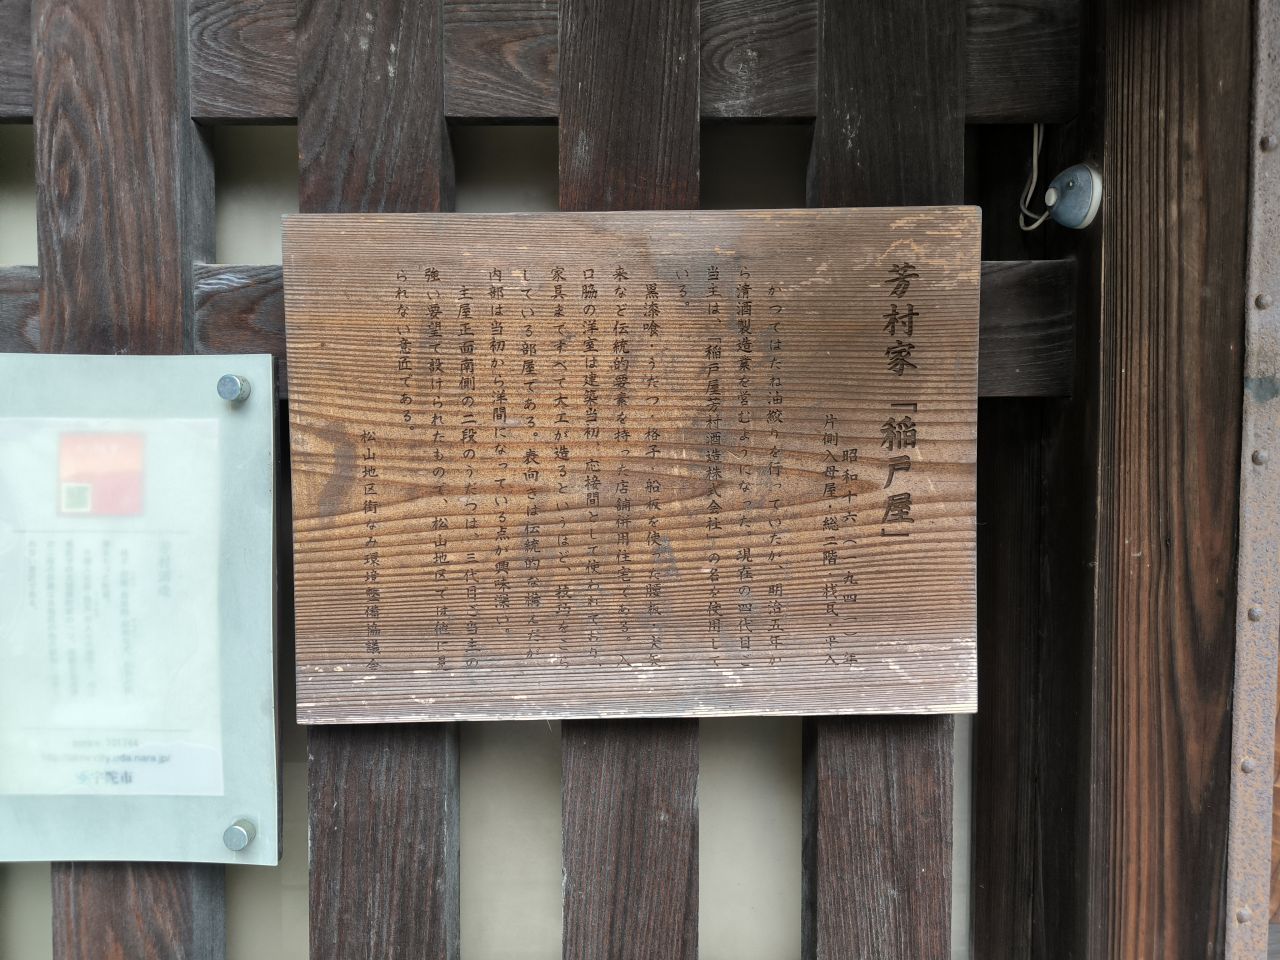 芳村家「稲戸屋」
昭和十六(一九四一)年
片側入母屋・総二階・桟瓦・平入
かつてはたね油絞りを行っていたが、明治五年か
ら清酒製造業を営むようになった。現在の四代目ご
当主は、「稲戸屋芳村酒造株式会社」の名を使用して
いる。
黒漆喰・うだつ・格子・船板を使った腰板・犬矢
来など伝統的要素を持った店舗併用住宅である。入
口脇の洋室は建築当初、応接間として使われており、
家具まですべて大工が造るというほど、技巧をこら
している部屋である。表向きは伝統的な構えだが、
内部は当初から洋間になっている点が興味深い。
主屋正面南側の二段のうだつは、三代目ご当主の
強い要望で設けられたもので、松山地区では他に見
られない意匠である。
松山地区街なみ環境整備協議会
宇陀市